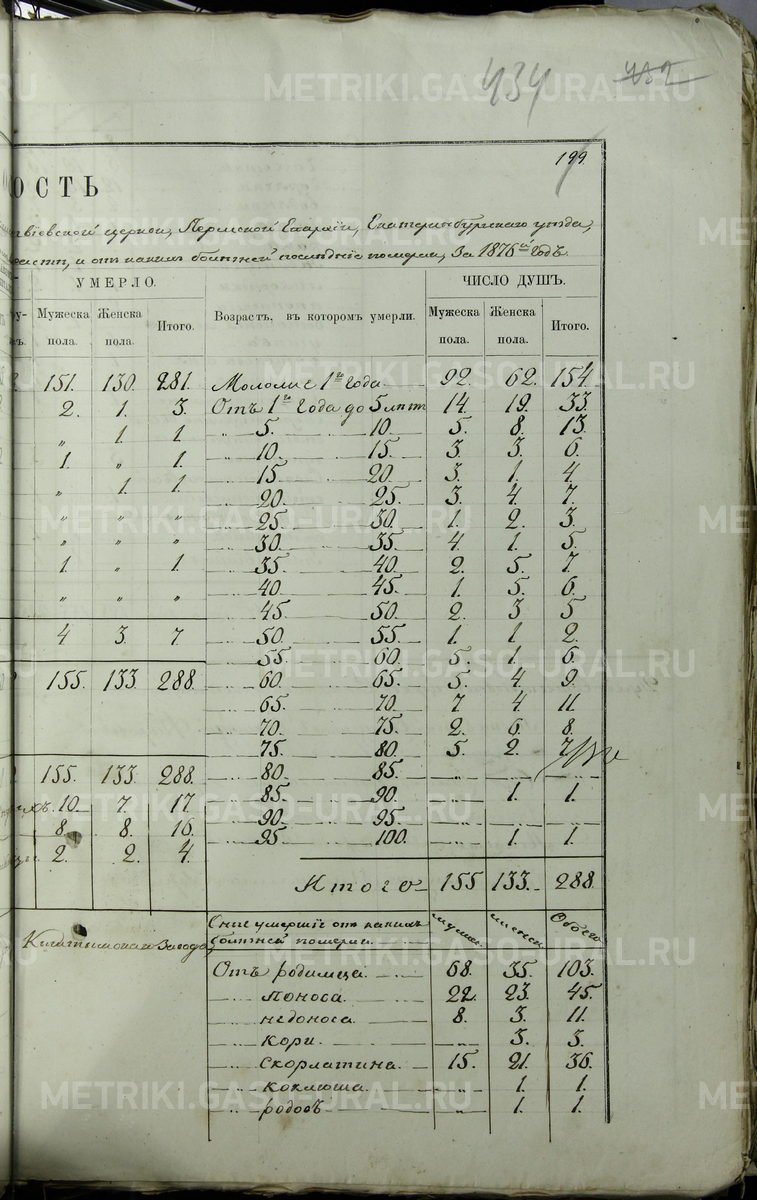 434 432
199.
ОСТЬ
вѣевской церкви, Пермской Епархіи, Екатеринбургскаго уѣзда,
и отъ какихъ болѣзней послѣдніе померли, За 1876й годъ.
УМЕРЛО. ЧИСЛО ДУШЪ.
Мужеска пола. Женска пола. Итого. Возрастъ, въ которомъ умерли. Мужеска пола. Женска пола. Итого.
151. 130. 281. Моложе 1го года. 92. 62. 154.
2. 1. 3. Отъ 1го Года до 5 лѣтъ 14. 19. 33.
„ 1. 1. „ 5. 10. 5. 8. 13.
1. „ 1. 10. 15. 3. 3. 6.
„ 1. 1. 15. 20. 3. 1. 4.
„ „ „ 20. 25. 3. 4. 7.
„ „ „ 25. 30. 1. 2. 3.
1. „ 1. 30. 35. 4. 1. 5.
„ „ „ 35. 40. 2. 5. 7.
40. 45. 1. 5. 6.
45. 50. 2. 3 5
4 3. 7 50. 55. 1. 1. 2.
55. 60. 5. 1. 6.
155. 133. 288. 60. 65. 5. 4. 9.
65. 70. 7 4 11
70. 75. 2. 6. 8.
75. 80. 5. 2. 7
155. 133. 288. 80. 85.
10. 7. 17 85. 90. 1. 1.
8. 8. 16. 90. 95.
2. 2. 4. 95 100. 1. 1.
Итого 155 133. 288
Кыштымскаго Завода
Сіи умершіе отъ какихъ болѣзней померли. мужеск женск Обоего
Отъ родимца. 68. 35. 103.
Поноса. 22. 23. 45.
недоноса. 8. 3. 11.
кори. 3. 3.
скорлатина. 15. 21. 36.
коклюша. 1. 1.
родовъ 1. 1.
METRIKI.GASO-URAL.RU